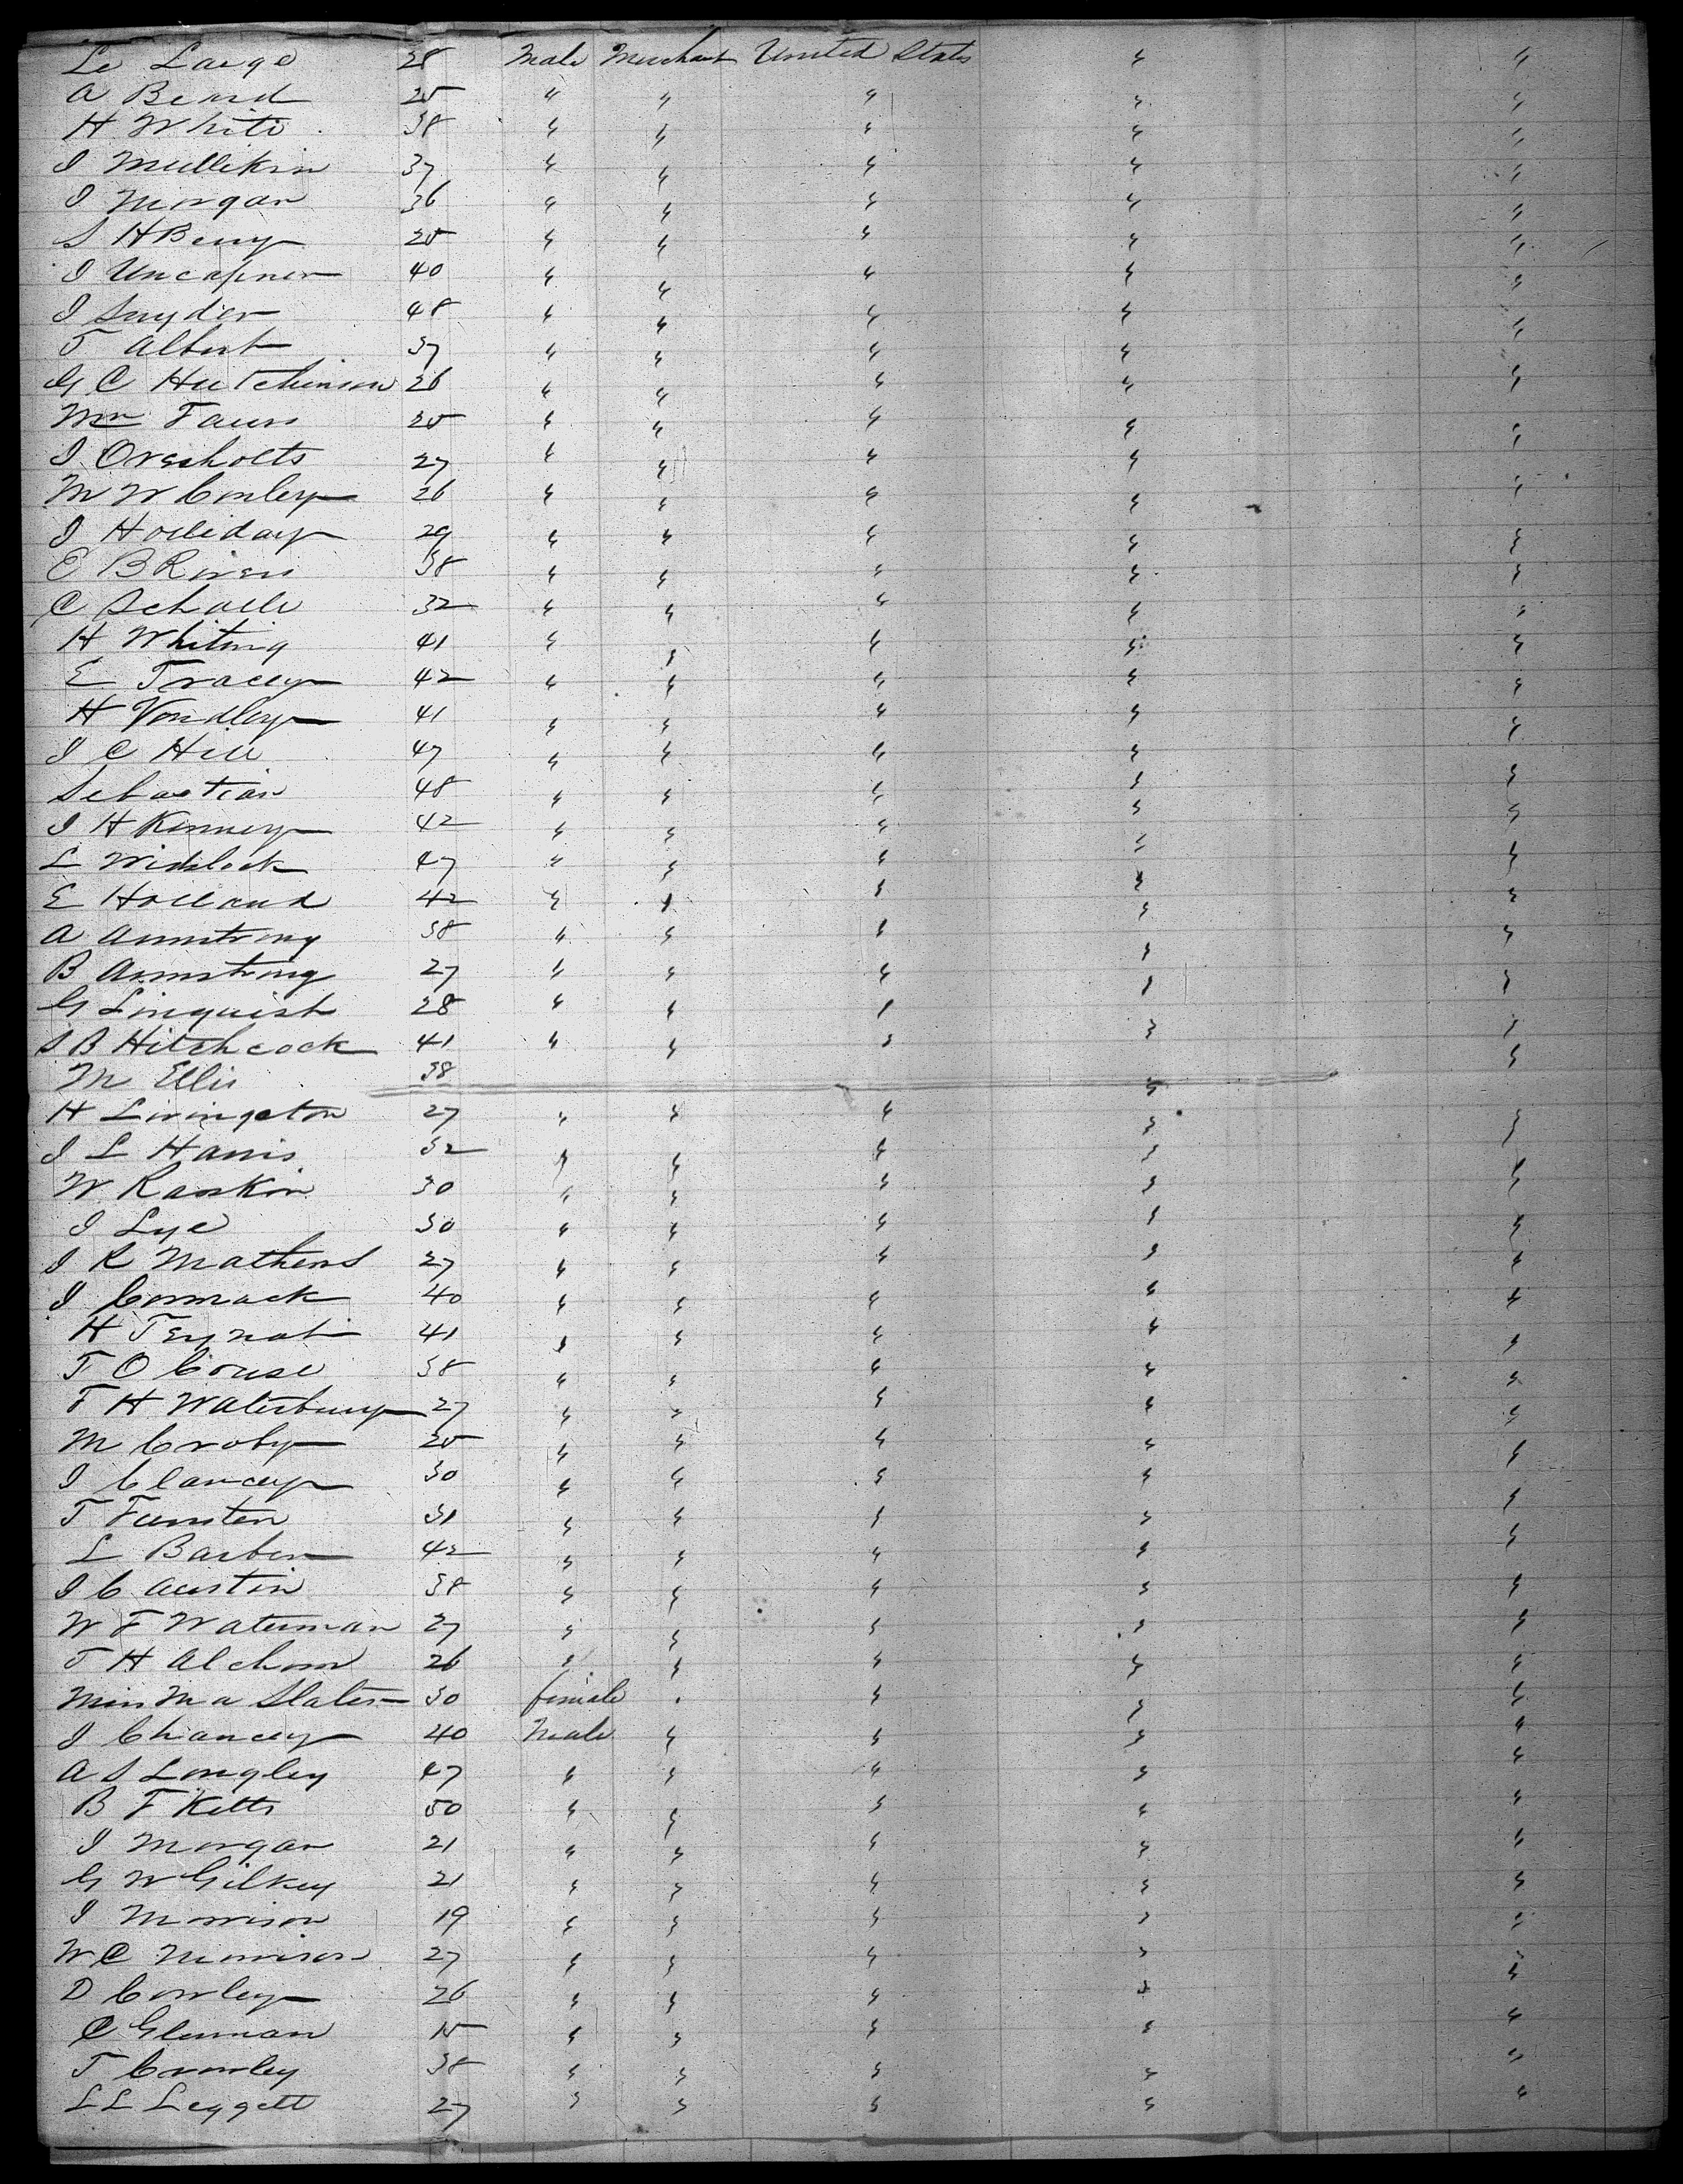 Le Large 28 Male Merchant United States " "
A Beard 25 " " " " "
H White 38 " " " " "
J Mullikin 37 " " " " "
J Morgan 36 " " " " "
S H Berry 25 " " " " "
J Uncapner 40 " " " " "
J Snyder 48 " " " " "
T Albert 37 " " " " "
G C Hutchinson 26 " " " " "
Mr 25 " " " " "
J Oversholts 27 " " " " "
M W Conley 26 " " " " "
J Holliday 29 " " " " "
E B Rivers 38 " " " " "
C Scholle 32 " " " " "
H Whiting 41 " " " " "
E Tracey 42 " " " " "
H Vondley 41 " " " " "
J C Hill 47 " " " " "
Sebastian 48 " " " " "
J H Kenney 42 " " " " "
L 47 " " " " "
E Holland 42 " " " " "
A Armstrong 38 " " " " "
B Armstrong 27 " " " " "
G Linquist 28 " " " " "
S B Hitchcock 41 " " " " "
M Ellis 38 "
H Livingston 27 " " " " "
J L Harris 32 " " " " "
W Rankin 30 " " " " "
J Lye 30 " " " " "
J R Mathews 27 " " " " "
J Cormack 40 " " " " "
H 41 " " " " "
T O Couse 38 " " " " "
F H Waterbury 27 " " " " "
M Croby 25 " " " " "
J Clancey 30 " " " " "
T Funsten 31 " " " " "
L Barber 42 " " " " "
J C Austin 38 " " " " "
W F Waterman 27 " " " " "
T H Alchorn 26 " " " " "
Miss M A Slater 30 female " " " "
J Chancey 40 Male " " " "
A S Longley 47 " " " " "
B F Kelts 50 " " " " "
J Morgan 21 " " " " "
G W Gilkey 21 " " " " "
J Morrison 19 " " " " "
W C Morrison 27 " " " " "
D Conley 26 " " " " "
C 15 " " " " "
T Crowley 38 " " " " "
L L Leggett 27 " " " " "